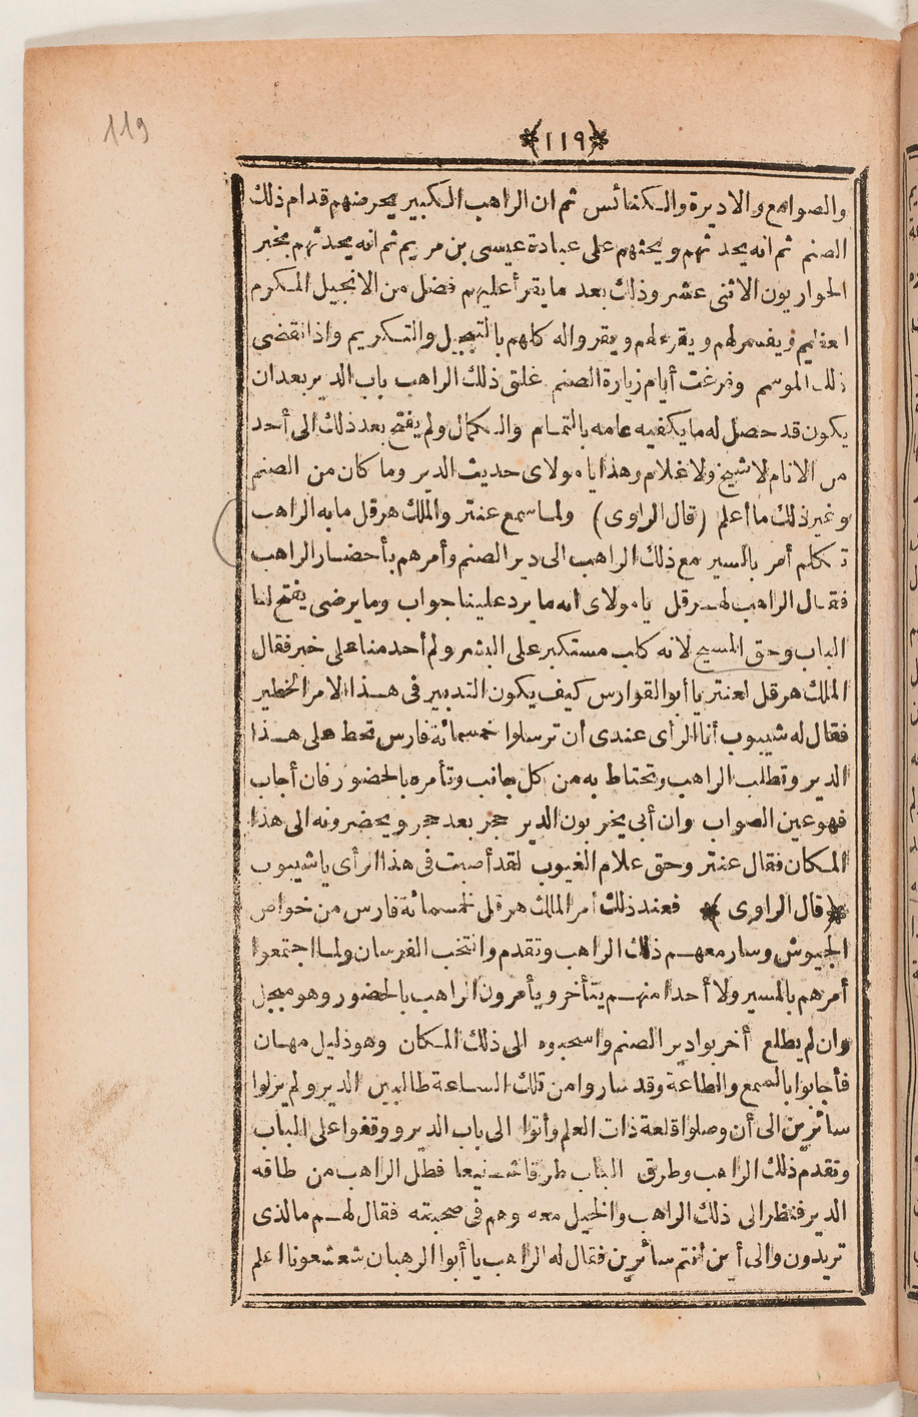 119
﴿١١٩﴾
والصوامع والاديرة والكنائس ثم ان الراهب الكبير يحرضهم قدام ذلك
الصنم ثم انه يحدثهم ويحثهم على عبادة عيسى بن مريم ثم انه يحدثهم بخبر
الحواريون الاثنى عشر وذلك بعد ما يقرأ عليهم فضل من الانجيل المكرم
العظيم فيفسر لهم ويقرء لهم ويقروا له كلهم بالتبجيل والتكريم واذا انقضى
ذلك الموسم وفرغت أيام زيارة الصنم غلق ذلك الراهب باب الدير بعد ان
يكون قد حصل له ما يكفيه عامه بالتمام والكمال ولم يفتح بعد ذلك الى أحد
من الانام لا شيخ ولا غلام وهذا يا مولاى حديث الدير وما كان من الصنم
وغير ذلك ما أعلم (قال الراوى) ولما سمع عنتر والملك هرقل ما به الراهب
تكلم أمر بالسير مع ذلك الراهب الى دير الصنم وأمرهم بأحضار الراهب
فقال الراهب لهرقل يا مولاى انه ما يرد علينا جواب وما يرضى يفتح لنا
الباب وحق المسيح لانه كلب مستكبر على البشر ولم أحد منا على خبر فقال
الملك هرقل لعنتر يا أبو الفوارس كيف يكون التدبير فى هذا الامر الخطير
فقال له شيبوب أنا الرأى عندى أن ترسلوا خمسمائة فارس تحط على هذا
الدير وتطلب الراهب وتحتاط به من كل جانب وتأمره بالحضور فان أجاب
فهو عين الصواب وان أبى يخربون الدير حجر بعد حجر ويحضرونه الى هذا
المكان فقال عنتر وحق علام الغيوب لقد أصبت فى هذا الرأى يا شيبوب
﴿قال الراوى﴾ فعند ذلك أمر الملك هرقل خمسمائة فارس من خواص
الجيوش وسار معهم ذلك الراهب وتقدم وانتخب الفرسان ولما اجتمعوا
أمرهم بالمسير ولا أحدا منهم يتأخر ويأمرون الراهب بالحضور وهو مبجل
وان لم يطلع أخربوا دير الصنم واسحبوه الى ذلك المكان وهو ذليل مهان
فأجابوا بالسمع والطاعة وقد ساروا من تلك الساعة طالبين الدير ولم يزلوا
سائرين الى أن وصلوا قلعة ذات العلم وأتوا الى باب الدير ووقفوا على الباب
وتقدم ذلك الراهب وطرق الباب طرقا شنيعا فطل الراهب من طاقه
الدير فنظر الى ذلك الراهب والخيل معه وهم فى صحبته فقال لهم ما الذى
تريدون والى أين انتم سائرين فقال له الراهب يا أبوا الرهبان شعشعونا اعلم